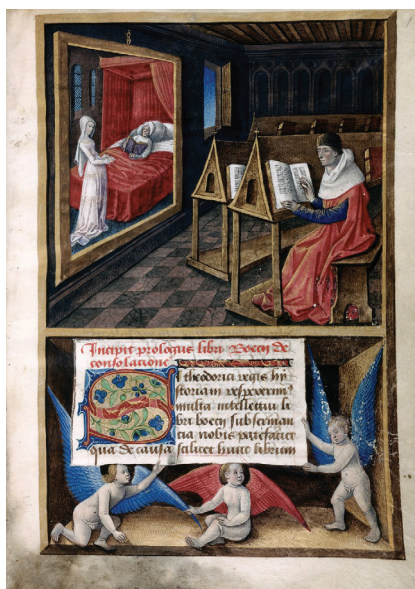 Incipit prologus libri Boecij de
consolatione
Si theodorici regis hys
toriam perspexerim?
multa intellectui li
bri boecij subserman
tia nobis patefacit
qua de causa scilicet hunc librum